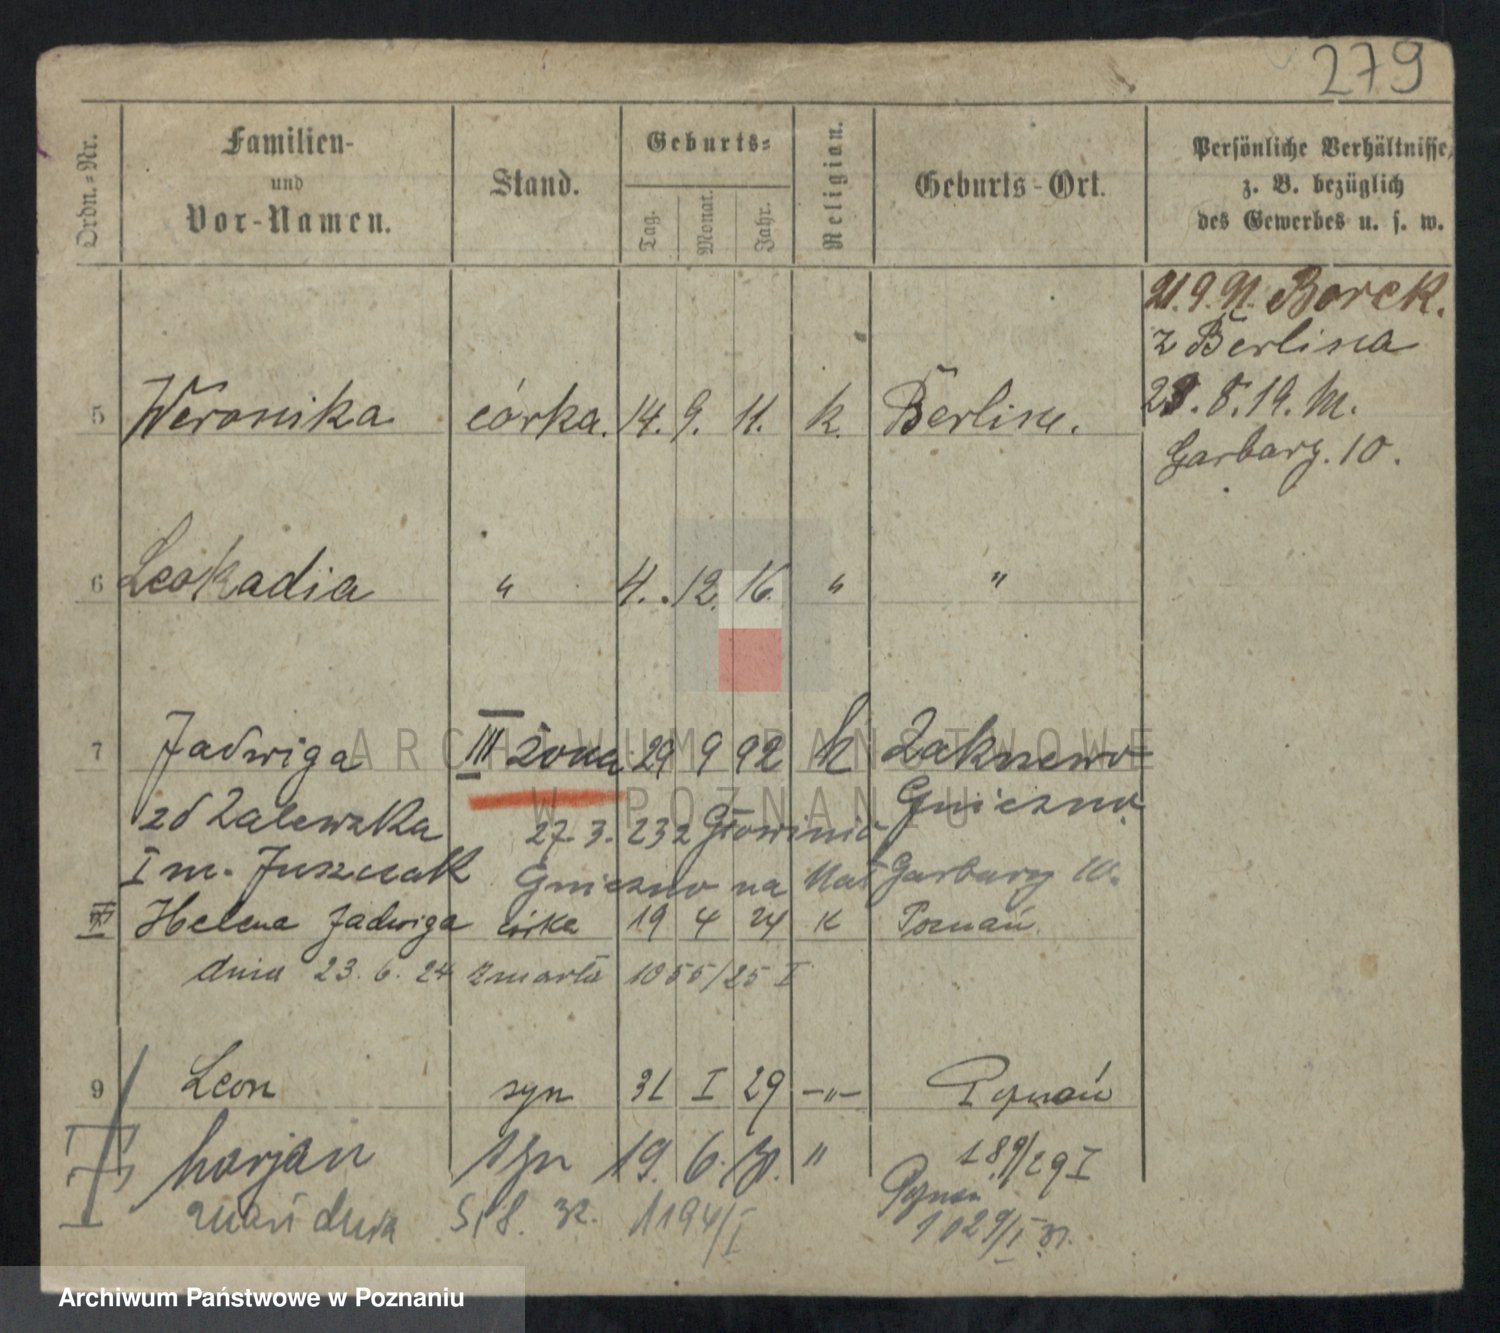 279
Ordn.=Nr.
Familien-
und
Vor-Namen.
Stand.
Geburts=
Tag.
Monat.
Jahr.
Religion.
Geburts-Ort.
Persönliche Verhältnisse,
z. B. bezüglich
des Gewerbes u. s. w.
21.9.91. Borek.
z Berlina
28.8.19. M.
Garbary. 10.
5 Weronika córka. 14. 9. 11. k. Berlin.
6 Leokadia " 4. 12. 16. " "
7 Jadwiga III żona 29 9 92 k
Gniezno
zd Zalewska 27. 3. 232
I m. Juszczak Gniezno na Garbary
Helena Jadwiga córka 19 4 24 k Poznań.
dnia 23. 6. 24 zmarła 1055/25 I
9 Leon syn 31 I 29 —"— Poznań
189/29 I
Marjan syn 19. 6. "
Poznań
1029/I 31.
1194/I
ARCHIWUM PAŃSTWOWE
W POZNANIU
Archiwum Państwowe w Poznaniu